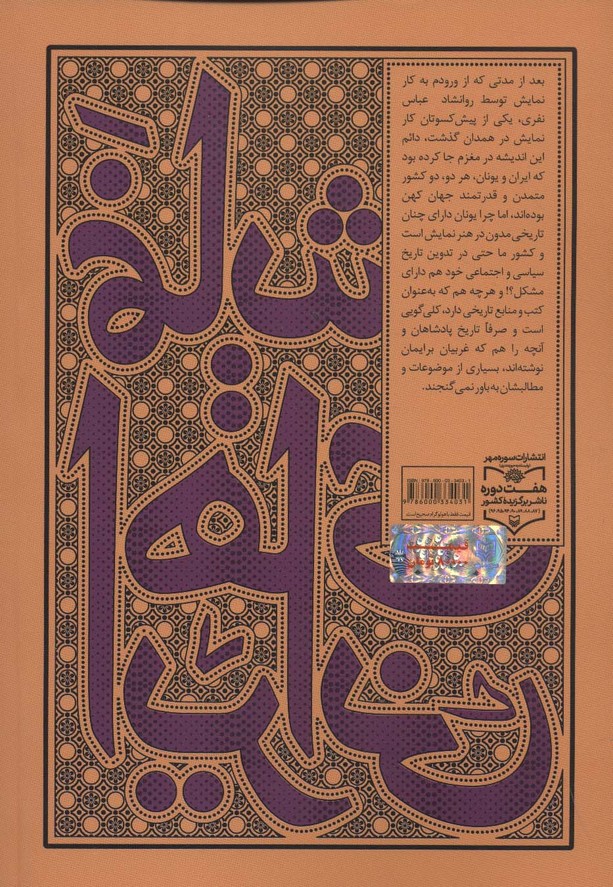 بعد از مدتی که از ورودم به کار
نمایش توسط روانشاد عباس
نفری، یکی از پیش‌کسوتان کار
نمایش در همدان گذشت، دائم
این اندیشه در مغزم جا کرده بود
که ایران و یونان، هر دو، دو کشور
متمدن و قدرتمند جهان کهن
بوده‌اند، اما چرا یونان دارای چنان
تاریخی مدون در هنر نمایش است
و کشور ما حتی در تدوین تاریخ
سیاسی و اجتماعی خود هم دارای
مشکل؟! و هرچه هم که به‌عنوان
کتب و منابع تاریخی دارد، کلی‌گویی
است و صرفاً تاریخ پادشاهان و
آنچه را هم که غربیان برایمان
نوشته‌اند، بسیاری از موضوعات و
مطالبشان به باور نمی‌گنجند.
انتشارات سوره مهر
هفت دوره
ناشر برگزیدهٔ کشور
ISBN: 978-600-03-3403-1
9786000334031
قیمت فقط با هولوگرام صحیح است